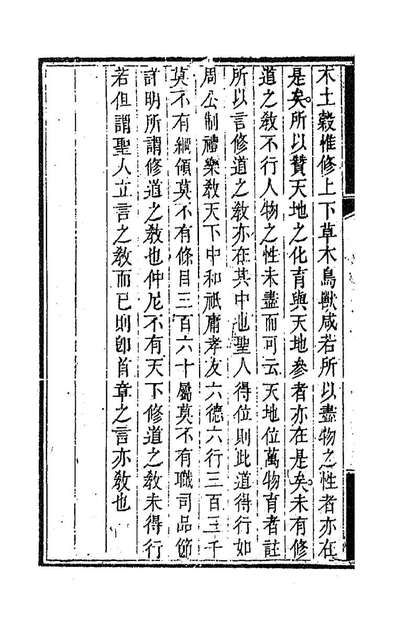 木土穀惟修上下草木鳥獸咸若所以盡物之性者亦在
是矣所以贊天地之化育與天地參者亦在是矣未有修
道之敎不行人物之性未盡而可云天地位萬物育者註
所以言修道之敎亦在其中也聖人得位則此道得行如
周公制禮樂敎天下中和祗庸孝友六德六行三百三千
莫不有綱領莫不有條目三百六十屬莫不有職司品節
詳明所謂修道之敎也仲尼不有天下修道之敎未得行
若但謂聖人立言之敎而已則卽首章之言亦敎也